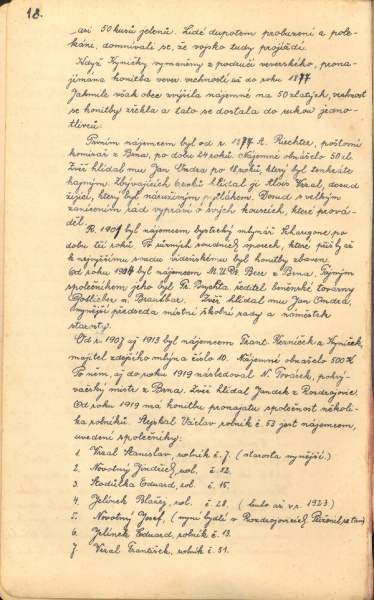 18.
asi 50 kusů jelenů. Lidé dupotem probuzeni a pole-
káni, domnívali se, že vojsko tudy projíždí.
Když Kyničky vymaněny z područí veverského, prona-
jímána honitba vever. vrchností až do roku 1877
Jakmile však obec zvýšila nájemné na 50 zlatých, vrchnost
se honitby zřekla a tato se dostala do rukou jedno-
tlivců:
Prvním nájemcem byl od r. 1877 A. Riechter, poštovní
komisař z Brna, po dobu 24 roků. Nájemné obnášelo 50 zl.
Zvěř hlídal mu Jan Ondra po 18 roků, který byl tenkráte
hajným. Zbývajících 6 roků hlídal ji Alois Vrzal, dosud
žijící, který byl náruživým pytlákem. Dosud s velkým
zanícením rád vypráví o svých kouscích, které prová-
děl.
R. 1901 byl nájemcem bystrcký mlynář po
dobu tří roků. Po různých soudních sporech, které přišly až
k nejvyššímu soudu vídeňskému byl honitby zbaven.
Od roku 1904 byl nájemcem M.U.Dr. Beer z Brna. Tajným
společníkem jeho byl Fr. ředitel továrny
Gottlieber a Brauchbar. Zvěř hlídal mu Jan Ondra,
bývalý předseda místní školní rady a náměstek
starosty.
Od r. 1907 až 1913 byl nájemcem Frant. Řezníček z Kyniček,
majitel zdejšího mlýna číslo 10. Nájemné obnášelo 500 K
Po něm, až do roku 1919 následoval N. Trnáček, pokrý-
vačský mistr z Brna. Zvěř hlídal Jandek z Rozdrojovic.
Od roku 1919 má honitbu pronajatu společnost několi-
ka rolníků. Stejskal Václav rolník č. 53 jest nájemcem,
uvedeni společníky:
1. Vrzal Stanislav, rolník č. 7. (starosta nynější.)
2. Novotný Jindřich, rol. č. 32.
3. Stodůlka Eduard, rol. č. 15.
4. Jelínek Blažej, rol. č. 28. (bylo až v r. 1923)
5. Novotný Josef, (nyní bydlí v Rozdrojovicích
6. Jelínek Eduard, rolník č. 13.
7. Vrzal František, rolník č. 31.